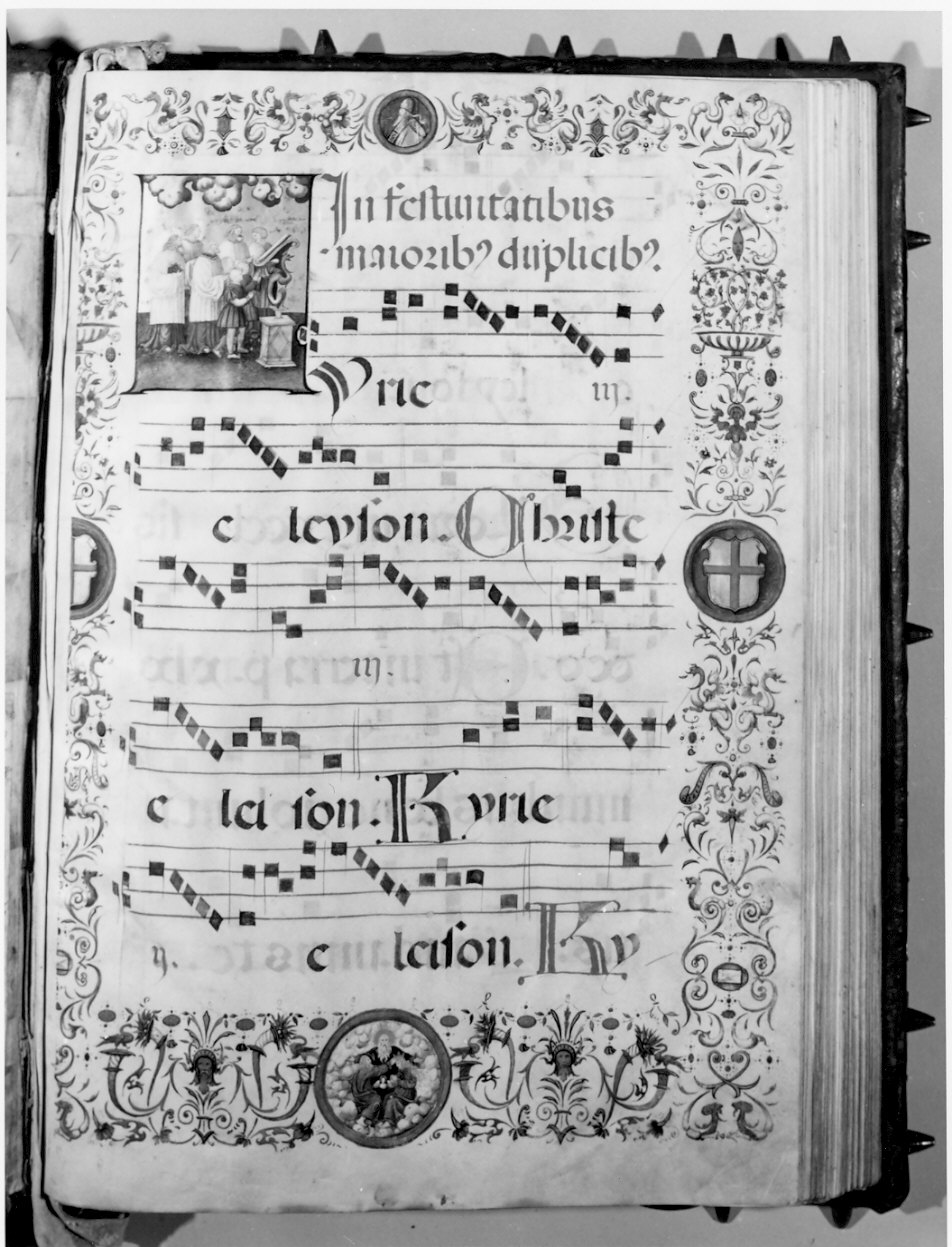 In festiuitatibus
maiorib⁹ duplicib⁹.
Kyrie iij.
e leyson. Christe
iij.
e lei son. Kyrie
ij. e leison. Ky